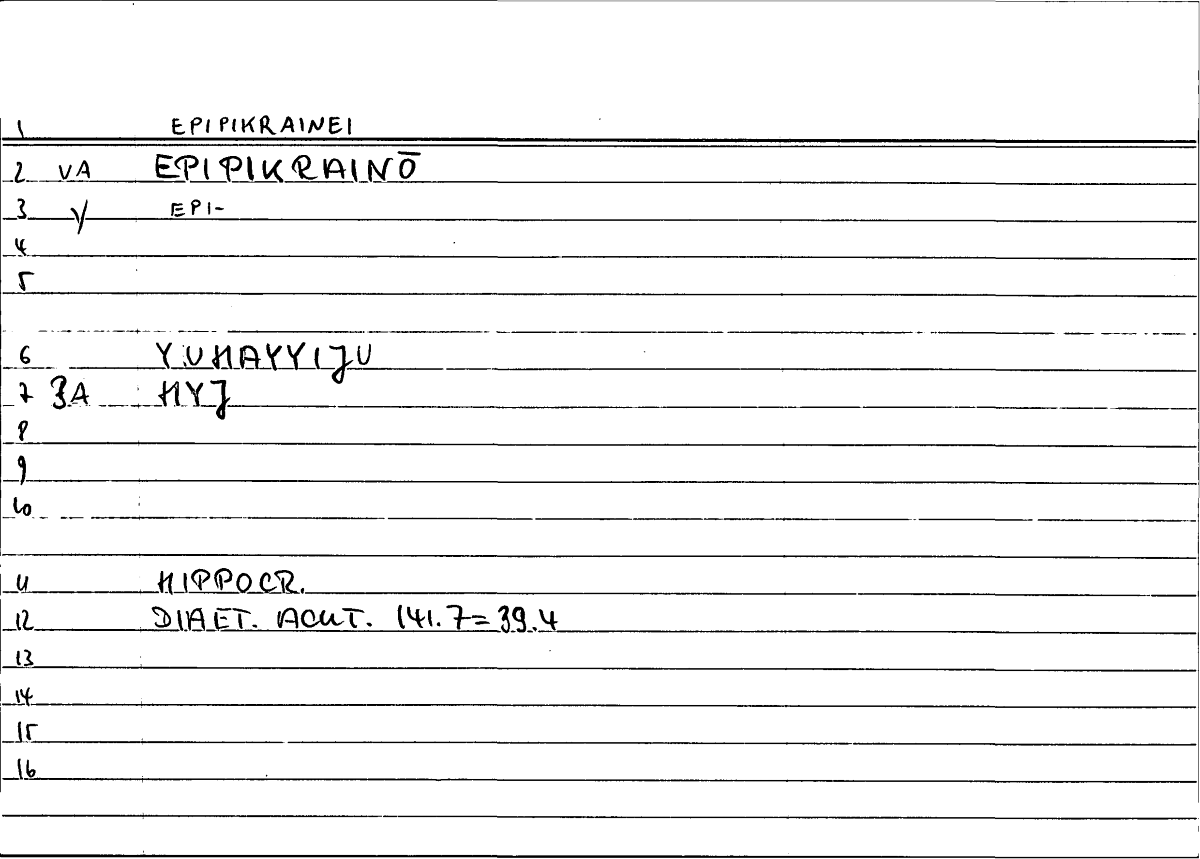 1 EPIPIKRAINEI
2 VA EPIPIKRAINŌ
3 Y EPI-
4
5
6 YUHAYYIJU
7 3A HYJ
8
9
10
11 HIPPOCR.
12 DIAET. ACUT. 141.7=39.4
13
14
15
16